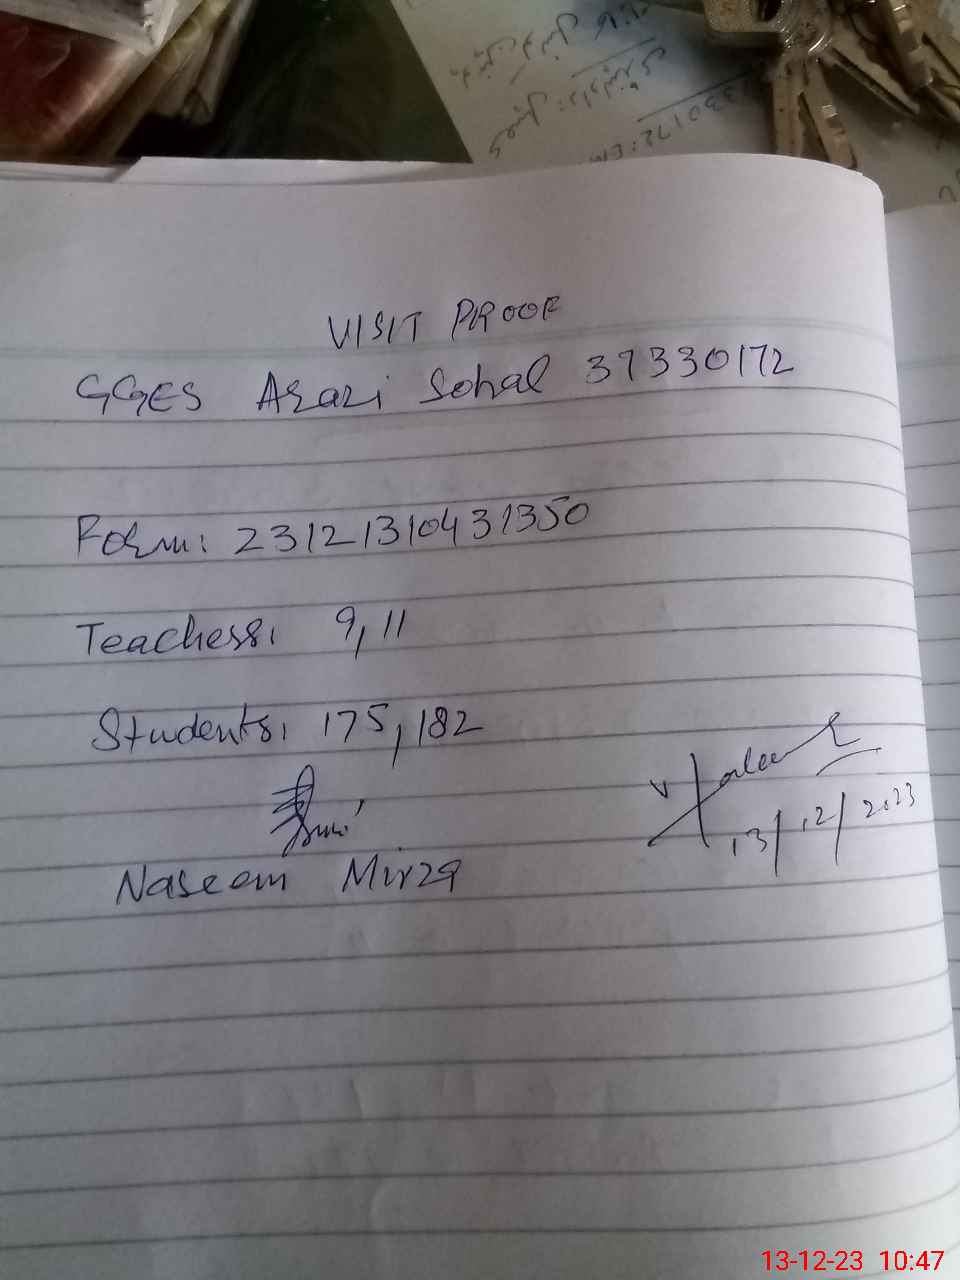 VISIT PROOF
GGES Arazi Sohal 37330172
Form: 23121310431350
Teachers: 9, 11
Students: 175, 182
Naseem Mirza
13/12/2023
13-12-23 10:47